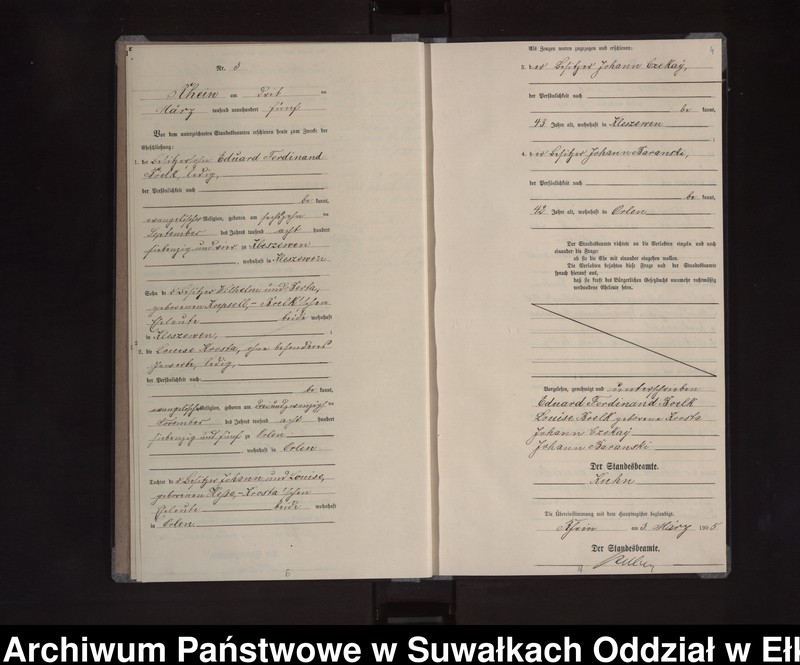 Nr. 3
Rhein am drit en
März tausend neunhundert fünf
Vor dem unterzeichneten Standesbeamten erschienen heute zum Zwecke der
Eheschließung:
1. der Besitzersohn Eduard Ferdinand
ledig,
der Persönlichkeit nach
be kannt,
evangelischer Religion, geboren am sechszehn en
September des Jahres tausend acht hundert
siebenzig und zu Kleszewen
, wohnhaft in Kleszewen
Sohn de r Besitzer Wilhelm und
geborenen schen
Eheleute beide wohnhaft
in Kleszewen, ;
2. die Louise Krosta, ohne besonderes
Gewerbe, ledig,
der Persönlichkeit nach
be kannt,
evangelischer Religion, geboren am dreiundzwanzigst en
November des Jahres tausend acht hundert
siebenzig und fünf zu Orlen
, wohnhaft in Orlen
Tochter de r Besitzer Johann und Louise,
geborenen -Krosta'schen
Eheleute beide wohnhaft
in Orlen
6
4
Als Zeugen waren zugezogen und erschienen:
3. der Besitzer Johann Czekay,
der Persönlichkeit nach
be kannt,
43 Jahre alt, wohnhaft in Kleszewen
;
4. der Besitzer Johann Baranski,
der Persönlichkeit nach
be kannt,
42 Jahre alt, wohnhaft in Orlen
Der Standesbeamte richtete an die Verlobten einzeln und nach
einander die Frage:
ob sie die Ehe mit einander eingehen wollen.
Die Verlobten bejahten diese Frage und der Standesbeamte
sprach hierauf aus,
daß sie kraft des Bürgerlichen Gesetzbuchs nunmehr rechtmäßig
verbundene Eheleute seien.
Vorgelesen, genehmigt und unterschrieben
Eduard Ferdinand
Louise geborene Krosta
Johann Czekay
Johann Baranski
Der Standesbeamte.
Kuhn
Die Übereinstimmung mit dem Hauptregister beglaubigt.
Rhein am 3. März 1905
Der Standesbeamte.
Archiwum Państwowe w Suwałkach Oddział w Ełk